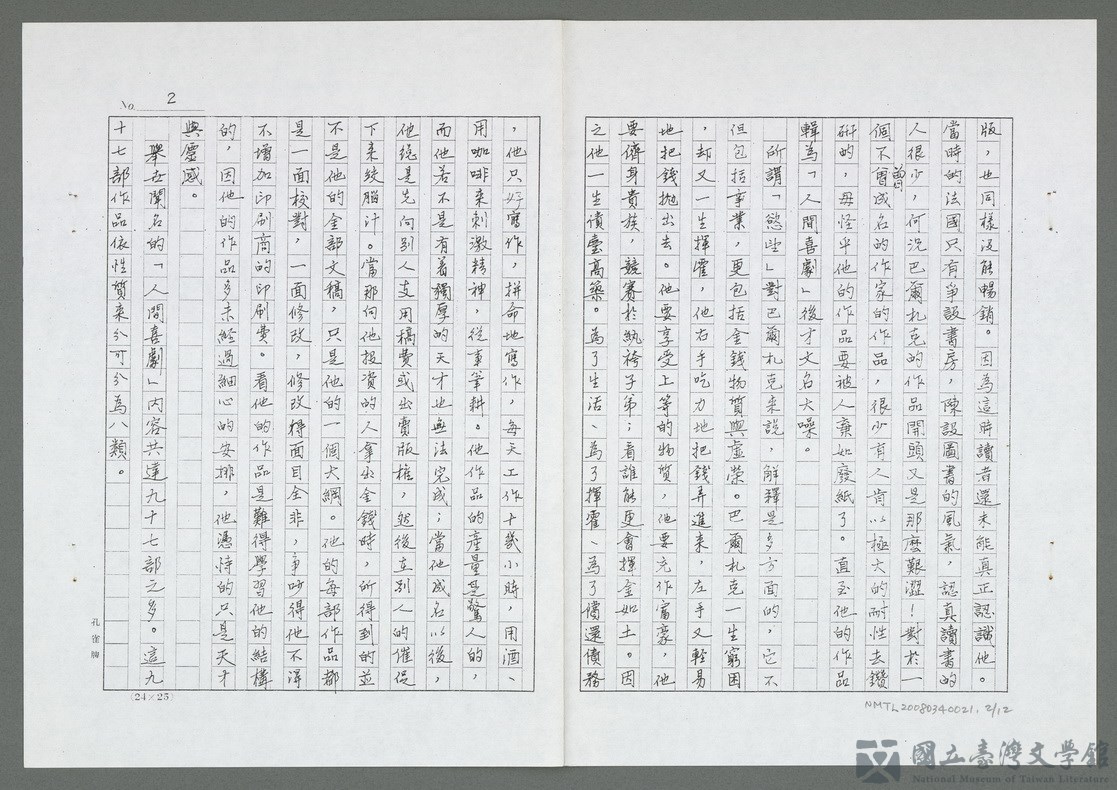 版，也同樣沒能暢銷。因為這時讀者還未能真正認識他。
當時的法國只有爭設書房，陳設圖書的風氣，認真讀書的
人很少，何況巴爾札克的作品開頭又是那麼艱澀！對於一
個不曾成名的作家的作品，很少有人肯以極大的耐性去鑽
研的，毋怪乎他的作品要被人棄如廢紙了。直至他的作品
輯為「人間喜劇」後才文名大噪。
所謂「慾望」對巴爾札克來說，解釋是多方面的，它不
但包括事業，更包括金錢物質與虛榮。巴爾札克一生窮困
，却又一生揮霍，他右手吃力地把錢弄進來，左手又輕易
地把錢拋出去。他要享受上等的物質，他要充作富豪，他
要儕身貴族，競賽於紈袴子弟；看誰能更會揮金如土。因
之他一生債臺高築。為了生活、為了揮霍、為了償還債務
，他只好寫作，拼命地寫作，每天工作十幾小時，用酒、
用咖啡來刺激精神，從事筆耕。他作品的產量是驚人的，
而他若不是有着獨厚的天才也無法完成；當他成名以後，
他總是先向別人支用稿費或出賣版權，然後在別人的催促
下來絞腦汁。當那向他投資的人拿出金錢時，所得到的並
不是他的全部文稿，只是他的一個大綱。他的每部作品都
是一面校對，一面修改，修改得面目全非，爭吵得他不得
不增加印刷商的印刷費。看他的作品是難得學習他的結構
的，因他的作品多未經過細心的安排，他憑恃的只是天才
與靈感。
舉世聞名的「人間喜劇」內容共達九十七部之多。這九
十七部作品依性質來分可分為八類。
No. 2
孔雀牌
(24×25)
NMTL20080340021, 2/12
國立臺灣文學館
National Museum of Taiwan Literature